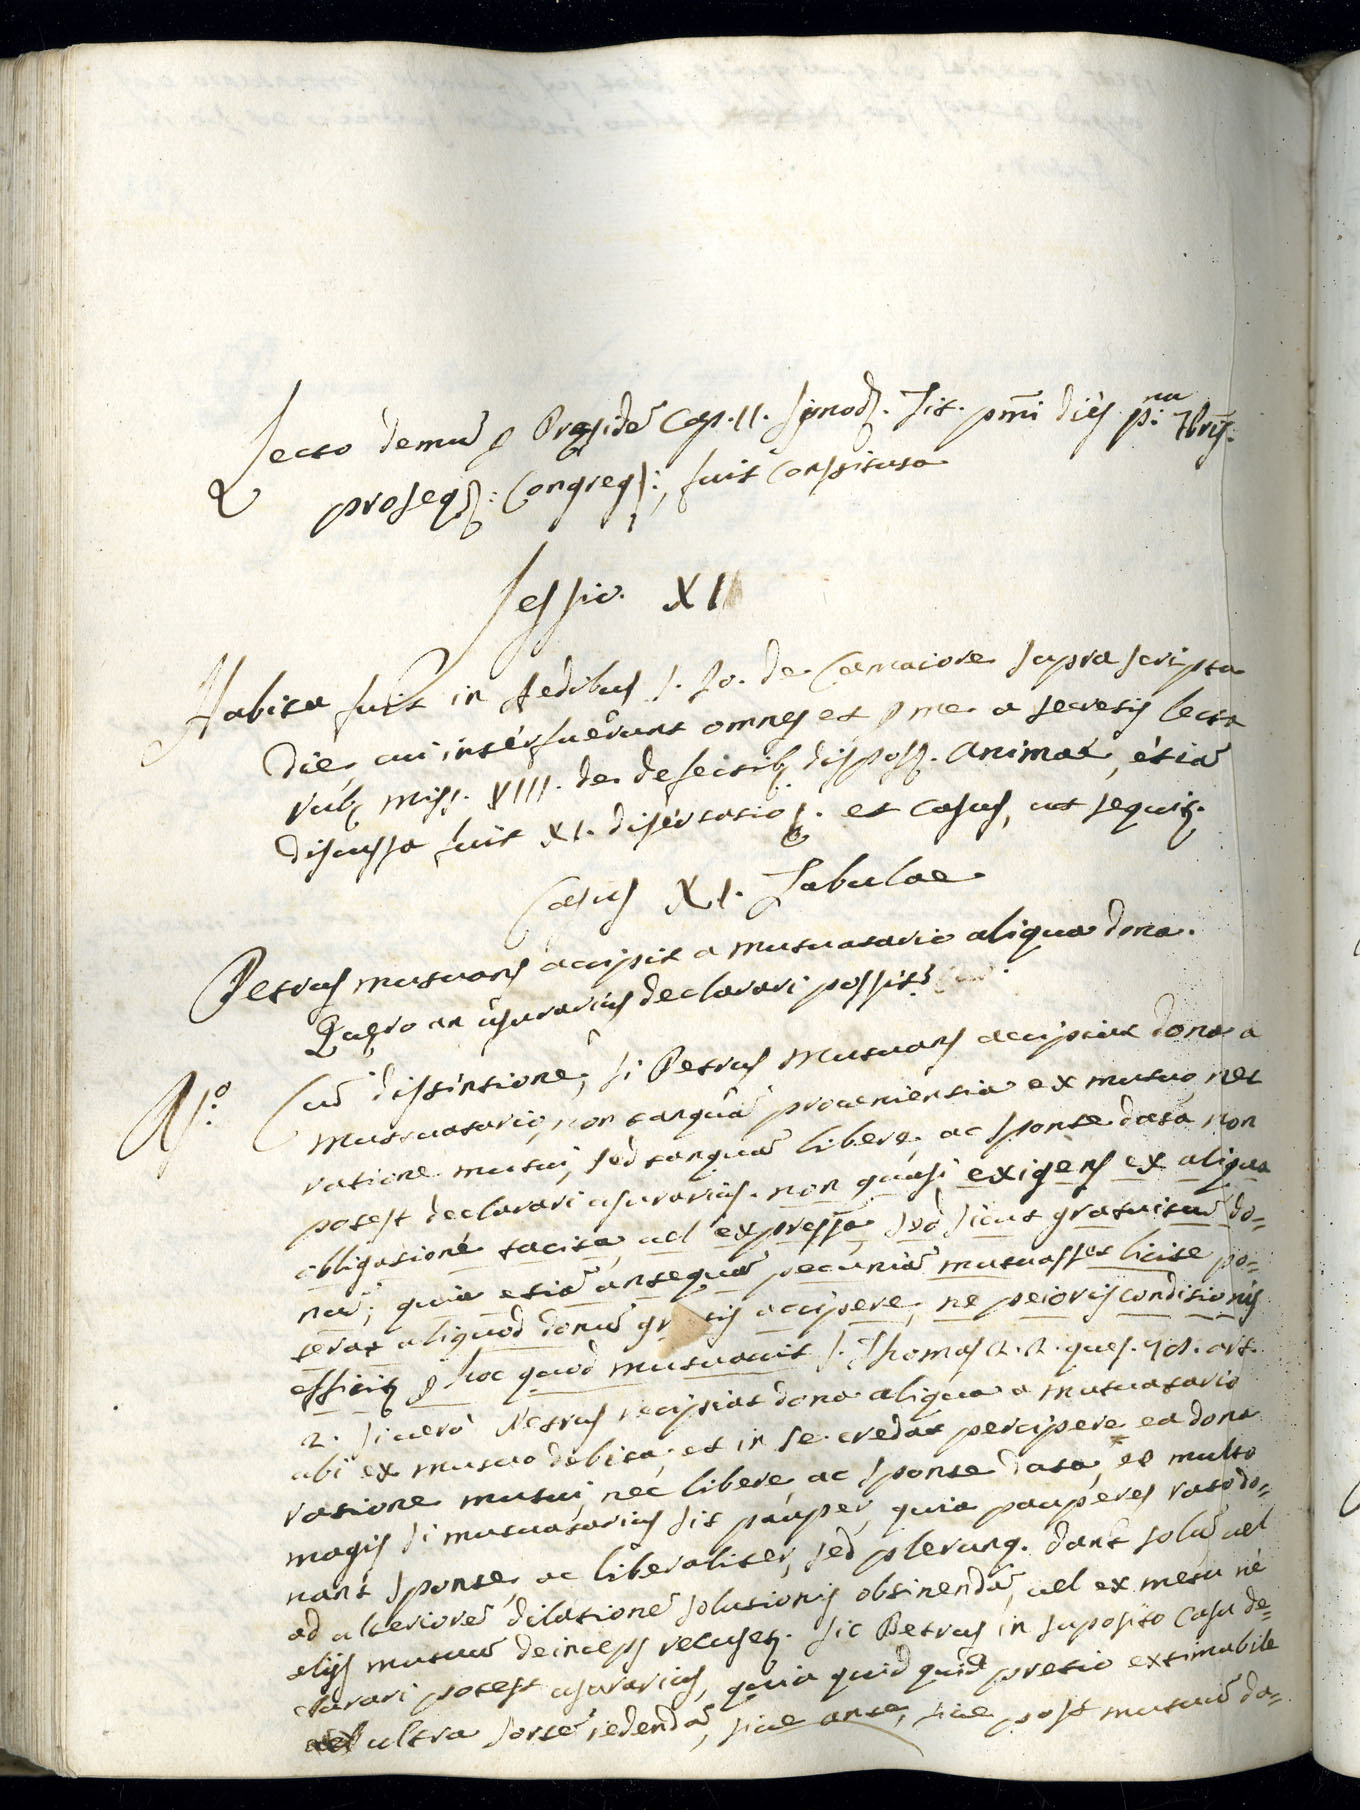 Lecto demū ꝑ Presidē Cap. 11. Synodi. Tit. pm̄i dies p.ª 7bris.
proseqd: Congregs:, fuit Constituta
Sessio. XI
Habita fuit in Aedibus S. Jo. de Camaiore suprascripta
die, cui interfuerunt omnes et ꝑ me a secretis lecta
Rub. Miss. VIII. de defectib. disposs. Animae, etiā
discussa fuit XI. disertatio. et casus, ut sequit.
Casus XI. Tabulae
Petrus mutuans accipit a mutuatario aliqua dona.
Quero an usurarius declarari possit?
Rs.º Cū distintione, si Petrus Mutuans accipiat dona a
Mutuatario, non tanquā provenientia ex mutuo, nec
ratione mutui, sed tanquā libere, ac sponte data non
potest declarari usurarius. non quasi exigens ex aliqua
obligatione tacita, vel expressa, sed sicut gratuitū do=
nū; quia etiā antequā pecuniā mutuasset licite po=
terat aliquod donū gratis accipere, ne peioris conditionis
efficit ꝑ hoc quod mutuavit S. Thomas 2. 2. ques. 78. art.
2. Si vero Petrus recipiat dona aliqua a mutuatario
ubi ex mutuo debita, et in se credat percipere ea dona
ratione mutui, nec libere, ac sponte data, et multo
magis si mutuatarius sit pauper, quia pauperes raro do=
nant sponte, ac liberaliter, sed plerunq. dant solū vel
ad ulteriorē dilationē solutionis obtinendā, vel ex metu ne
aliis mutuū deinceps recuset. sic Petrus in suposito casu de=
clarari potest usurarius, quia quid quid pretio extimabile
ultra sortē redendā, sive ante, sive post mutuū da=